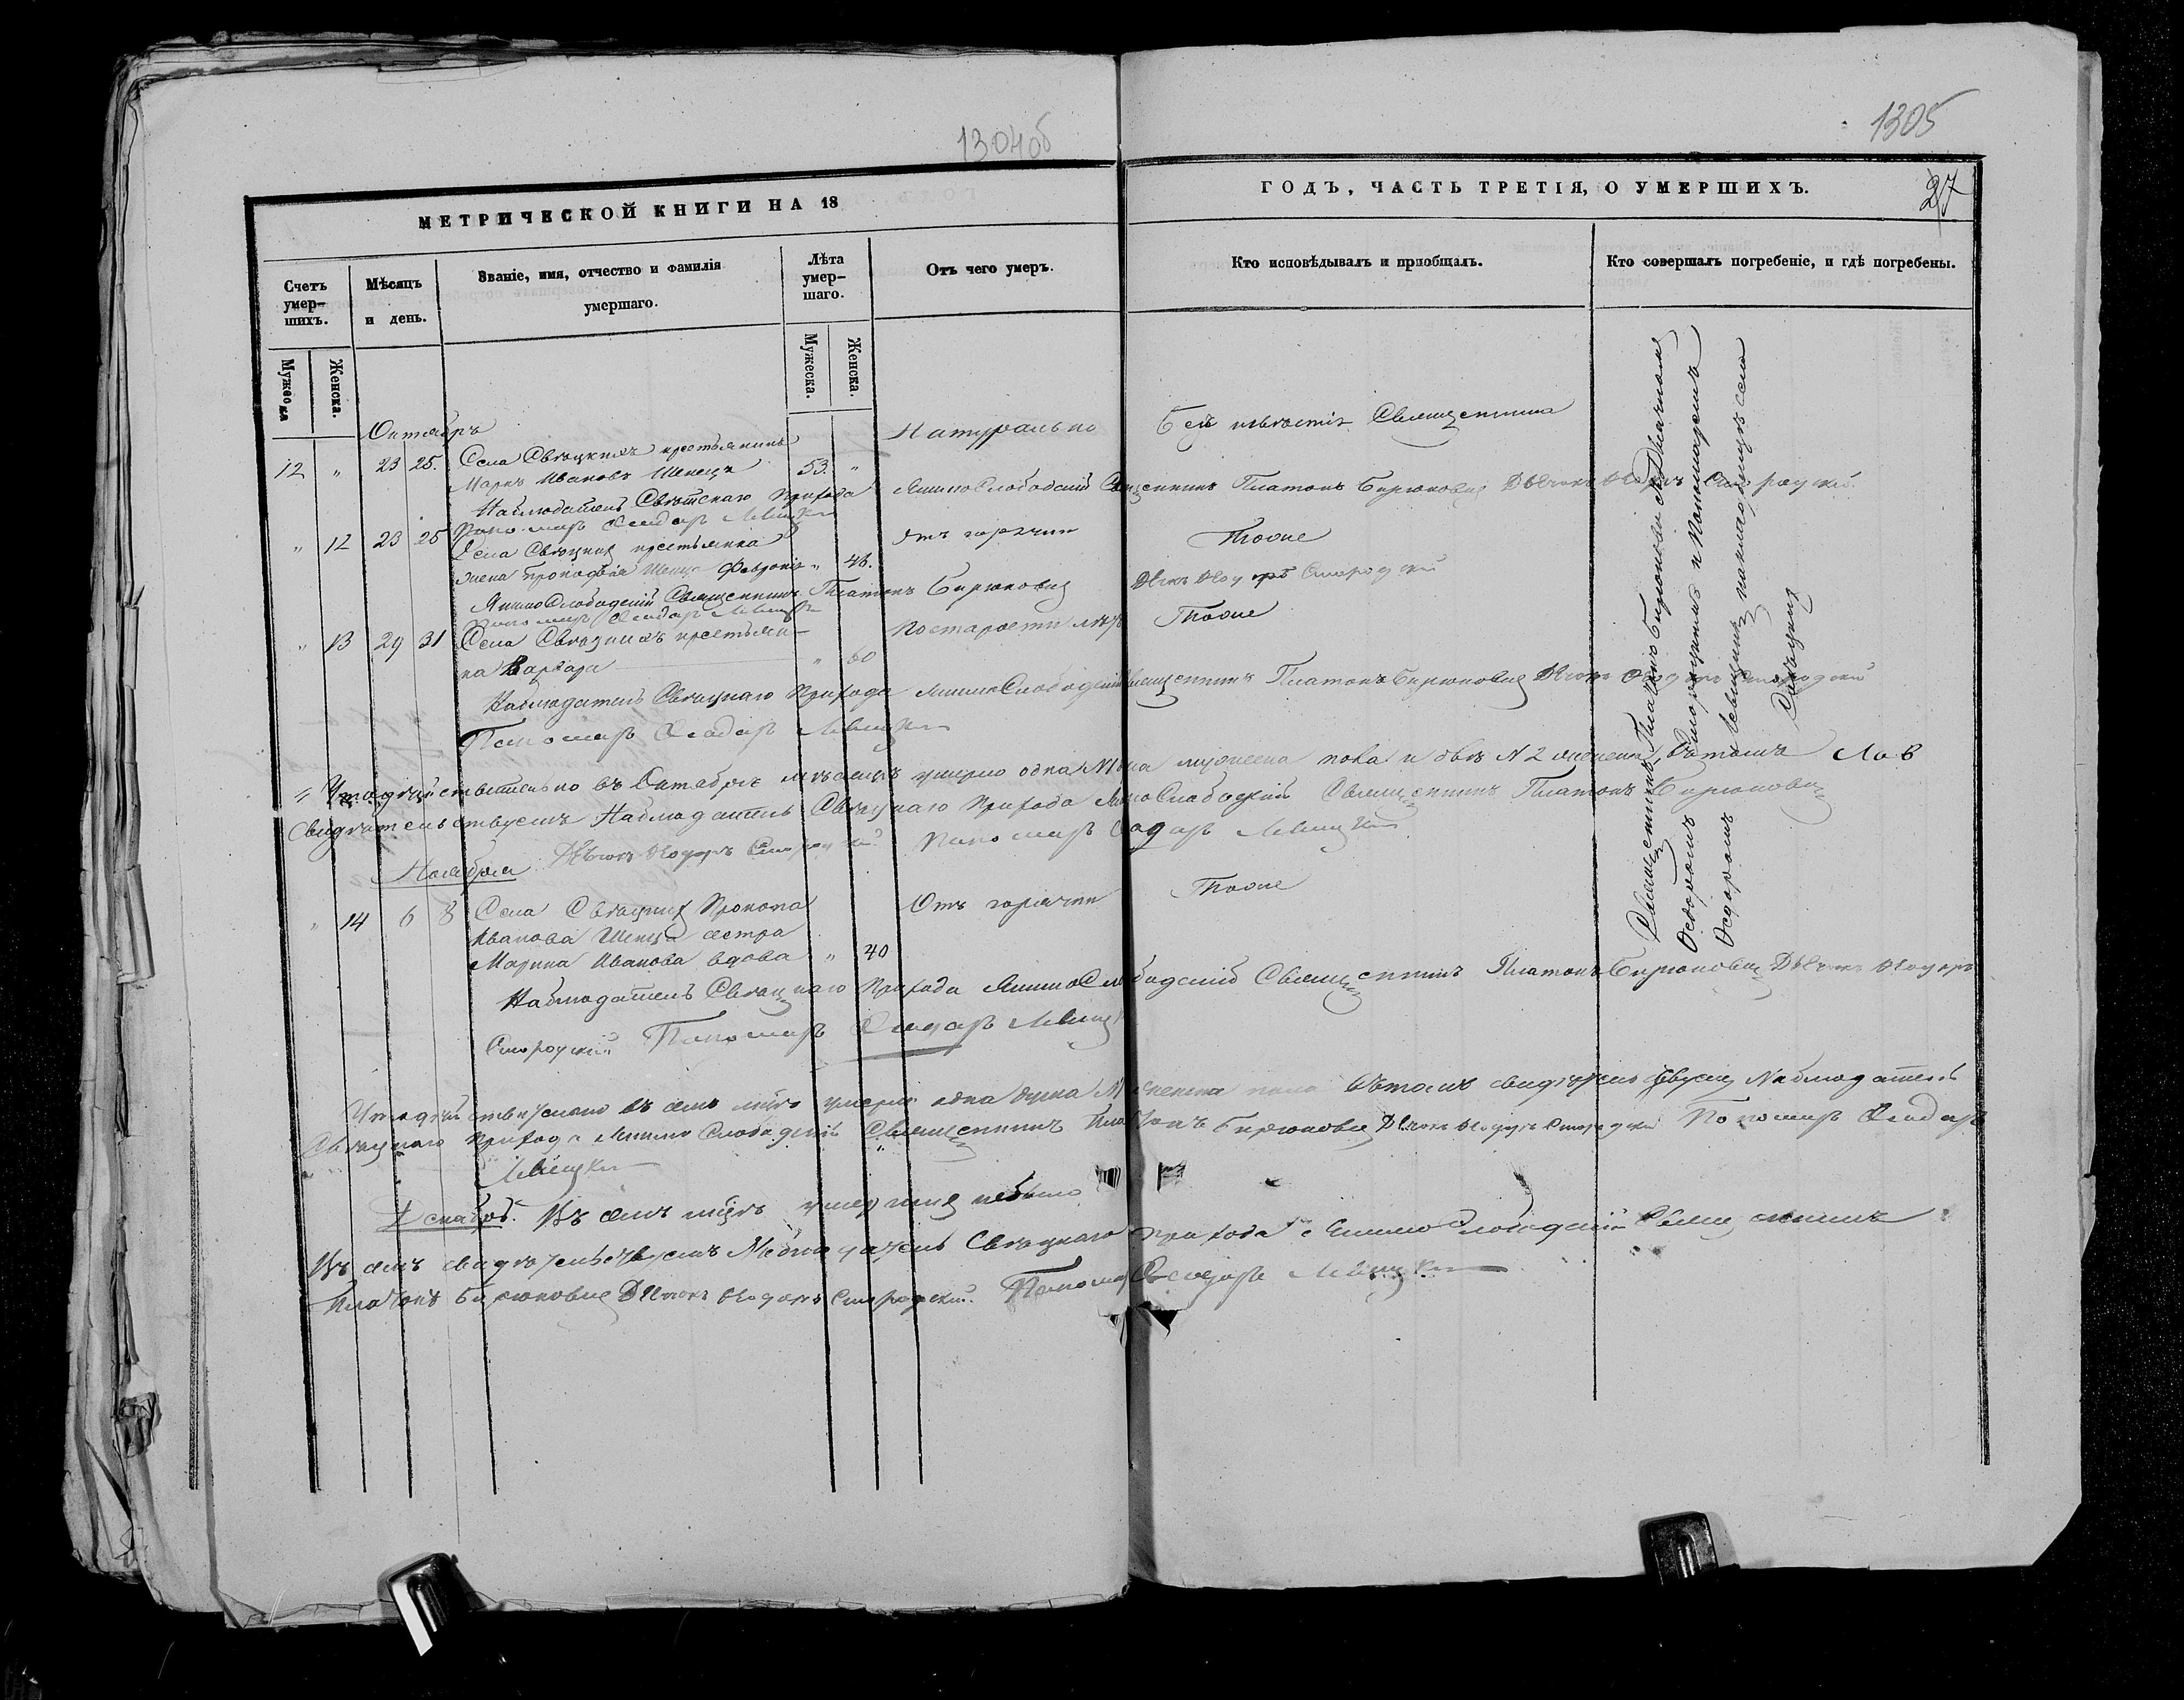 1304об
1305
МЕТРИЧЕСКОЙ КНИГИ НА 18
ГОДЪ, ЧАСТЬ ТРЕТІЯ, О УМЕРШИХЪ.
27
Счетъ умер-
шихъ.
Мѣсяцъ
и день.
Званіе, имя, отчество и фамилія
умершаго.
Лѣта
умер-
шаго.
Отъ чего умеръ.
Кто исповѣдывалъ и пріобщалъ.
Кто совершалъ погребеніе, и гдѣ погребены.
Мужеска
Женска.
Мужеска.
Женска.
Октябрь
12 " 23 25. Села Свѣцкихъ крестьянинъ
Маркъ Ивановъ Шенецъ 53. "
Натурально
Безъ извѣстія Священника
Наблюдатель Свѣтскаго Прихода ЯшноСлободскій Священникъ Платонъ Бирюковичъ Дьячокъ Ѳеодоръ
Пономарь Ѳеодоръ Левицкій
" 12 23 25 Села Свѣцкихъ крестьянка
жена Прокофія Шенца Февронія " 48.
отъ горячки
Тоже
ЯшноСлободскій Священникъ Платонъ Бирюковичъ
Пономарь Ѳеодоръ Левицкій
" 13 29 31 Села Свѣцкихъ крестьян-
ка Варвара " 60
По старости лѣтъ
Тоже
Наблюдатель Свѣцкаго Прихода ЯшноСлободскій Священникъ Платонъ Бирюковичъ
Пономарь Ѳеодоръ Левицкій
Что дѣйствительно въ Октябрѣ мѣсяцѣ умерло одна мужеска пола и двѣ № 2 женска, въ томъ
Свидѣтельствуемъ Наблюдатель Свѣцкаго Прихода ЯшноСлободскій Священникъ Платонъ Бирюковичъ
Дьячокъ Ѳеодоръ Пономарь Ѳеодоръ Левицкій
Ноября
" 14 6 8 Села Свѣцкихъ Прокопа
Иванова Шенца сестра
Марина Иванова вдова " 40
Отъ горячки
Тоже
Наблюдатель Свѣцкаго Прихода ЯшноСлободскій Священникъ Платонъ Бирюковичъ Дьячокъ Ѳеодоръ
Пономарь Ѳеодоръ Левицкій
Что дѣйствительно въ семъ мѣсяцѣ умерло одна душа женска пола въ томъ свидѣтельствуемъ Наблюдатель
Свѣцкаго Прихода ЯшноСлободскій Священникъ Платонъ Бирюковичъ Дьячокъ Ѳеодоръ Пономарь Ѳеодоръ
Левицкій
Декабрь. Въ семъ мѣсяцѣ умершихъ небыло
Въ семъ свидѣтельствуемъ Наблюдатель Свѣцкаго прихода ЯшноСлободскій Священникъ
Платонъ Бирюковичъ Дьячокъ Ѳеодоръ Пономарь Ѳеодоръ Левицкій
Священникъ Платонъ Бирюковичъ съ Дьячкомъ
Ѳеодоромъ и Пономаремъ
Ѳеодоромъ Левицкимъ на кладбищѣ села